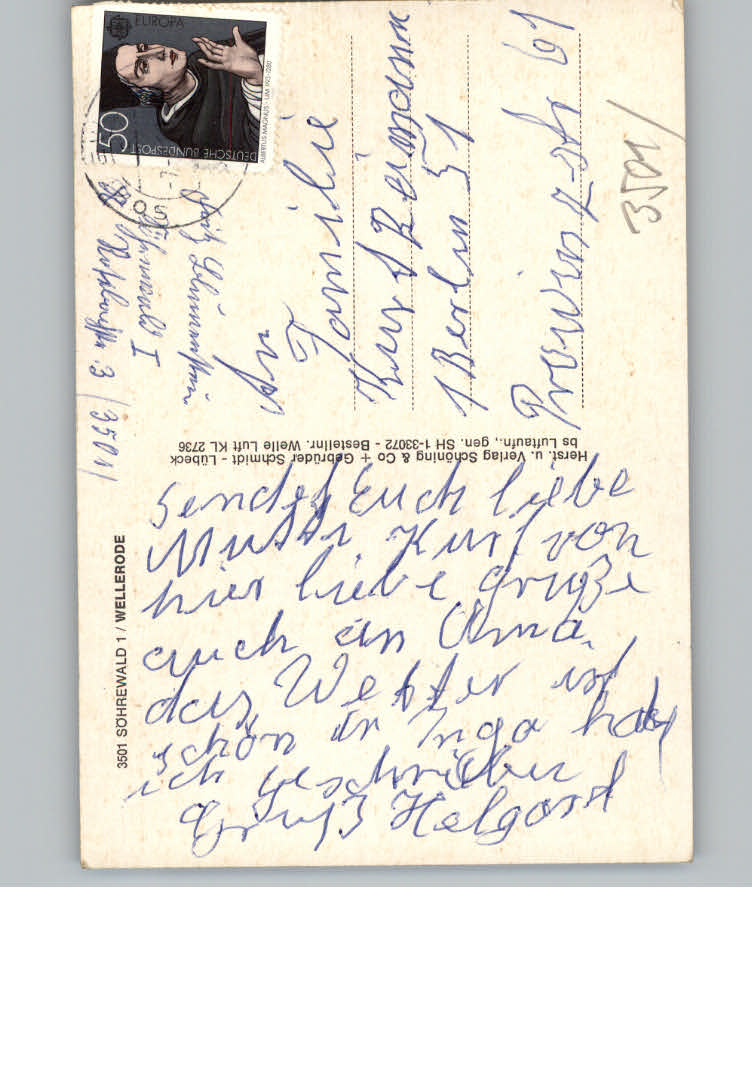 3501 SÖHREWALD 1 / WELLERODE
Sendet Euch liebe
Mutti Kurt von
hier liebe Grüße
auch an Oma
das Wetter ist
schön an Inga habe
ich geschrieben
Gruß Helga
Herst. u. Verlag Schöning & Co + Gebrüder Schmidt - Lübeck
bs Luftaufn., gen. SH 1-33072 - Bestellnr. Welle Luft KL 2736
Söhrewald I
3 (3501)
An
Familie
Kurt Reimann
1 Berlin 51
Provinz-Str 61
3501/
EUROPA
50
DEUTSCHE BUNDESPOST
ALBERTUS MAGNUS · UM 1193-1280